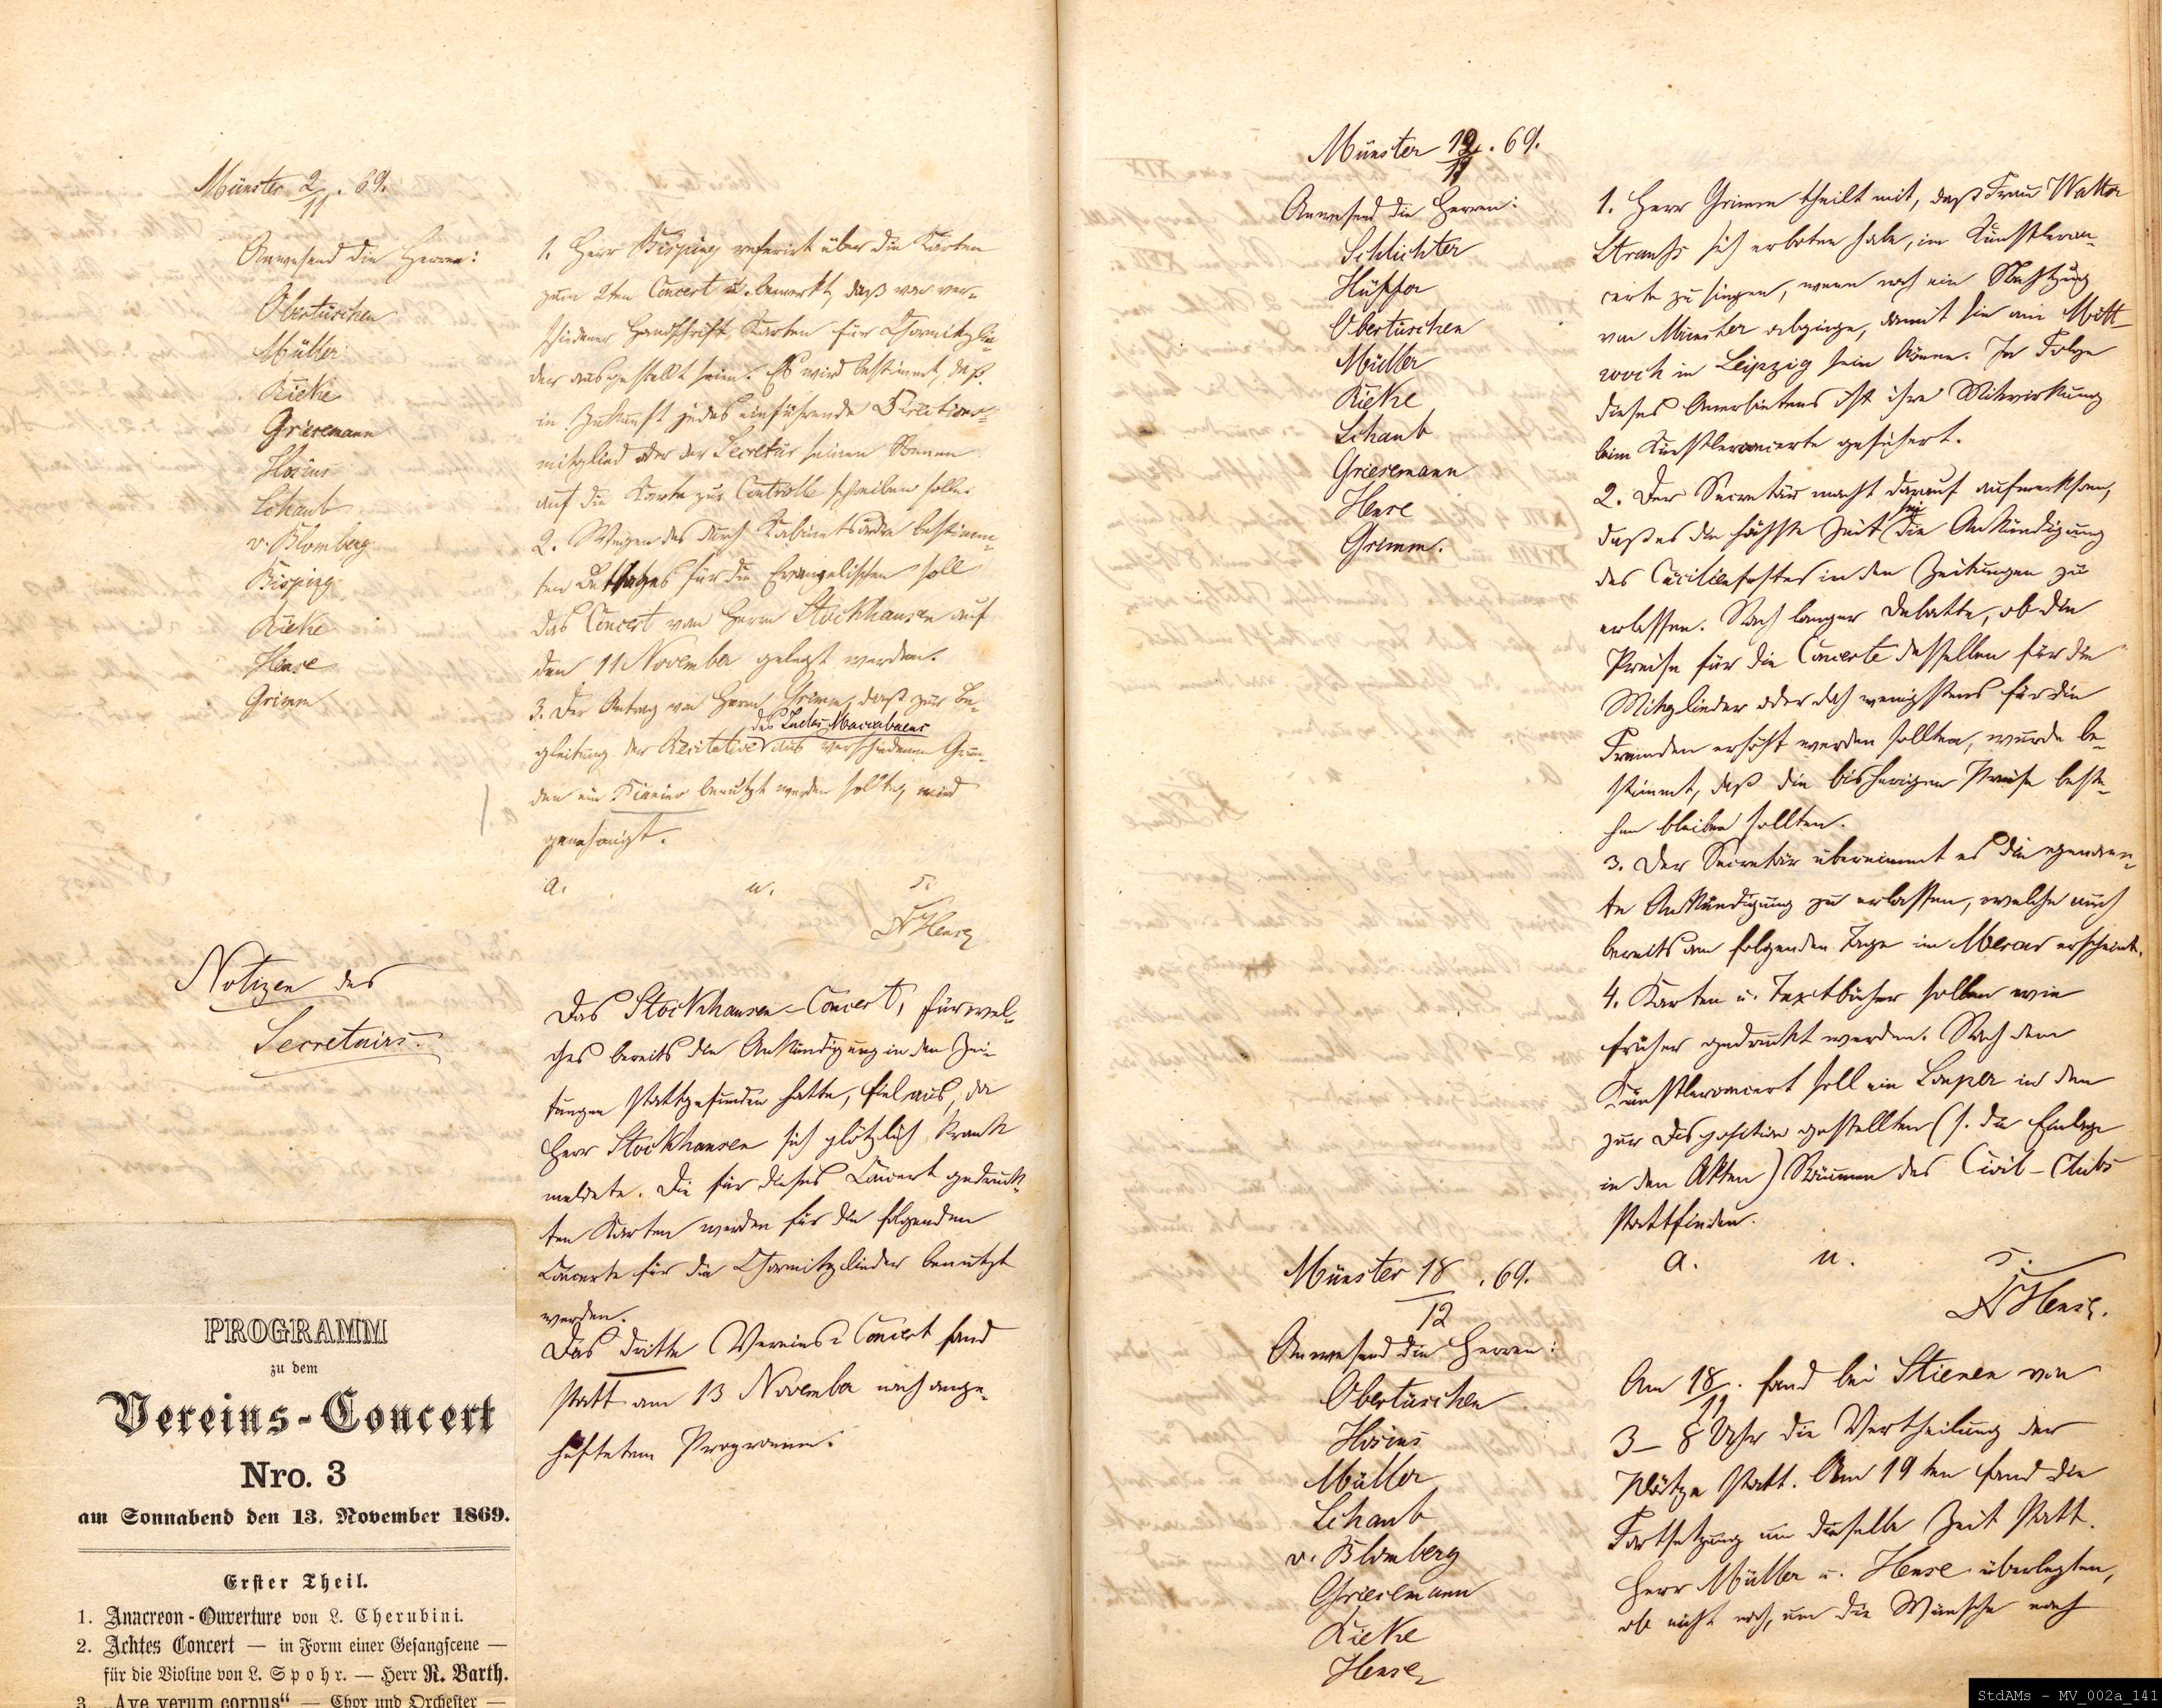 Münster 2/11. 69.
Anwesend die Herren:
Obertüschen
Müller
Rieke
Griesemann
Hosius
Schaub
v. Blomberg
Bisping
Rieke
Hense
Grimm
1. Herr Bisping referirt über die Karten
zum 2ten Concert u. bemerkt, daß von ver-
schiedener Handschrift Karten für Chormitglie-
der ausgestellt seien. Es wird bestimmt, daß
in Zukunft jedes einführende Directions-
mitglied oder der Secretär seinen Namen
auf die Karte zur Controlle schreiben solle.
2. Wegen des durch Kabinetsordre bestimm-
ten Bettages für die Evangelischen soll
das Concert von Herrn Stockhausen auf
den 11 November gelegt werden.
3. Der Antrag von Herrn Grimm, daß zur Be-
des Judas Maccabaeus
gleitung der Recitative aus verschiedenen Grün-
den ein Klavier benutzt werden sollte, wird
genehmigt.
a. u. s.
Hense
Notizen des
Secretairs.
Das Stockhausen-Concert, für wel-
ches bereits die Ankündigung in den Zei-
tungen stattgefunden hatte, fiel aus, da
Herr Stockhausen sich plötzlich krank
meldete. Die für dieses Concert gedruck-
ten Karten werden für die folgenden
Concerte für die Chormitglieder benutzt
werden.
Das dritte Vereins-Concert fand
statt am 13 November nach ange-
heftetem Programm.
PROGRAMM
zu dem
Vereins-Concert
Nro. 3
am Sonnabend den 13. November 1869.
Erster Theil.
1. Anacreon-Ouverture von L. Cherubini.
2. Achtes Concert — in Form einer Gesangscene —
für die Violine von L. Spohr. — Herr R. Barth.
3. „Ave verum corpus“ — Chor und Orchester —
Münster 12/11. 69.
Anwesend die Herren:
Schlichter
Hüffer
Obertüschen
Müller
Rieke
Schaub
Griesemann
Hense
Grimm.
1. Herr Grimm theilt mit, daß Frau Walter
Strauss sich erboten habe, im Künstlercon-
certe zu singen, wenn noch ein Nachtzug
von Münster abginge, damit sie am Mitt-
woch in Leipzig sein könne. In Folge
dieses Anerbietens ist ihre Mitwirkung
beim Künstlerconcerte gesichert.
2. Der Secretär macht darauf aufmerksam,
sei
daß es die höchste Zeit die Ankündigung
des Cäcilienfestes in den Zeitungen zu
erlassen. Nach langer Debatte, ob die
Preise für die Concerte desselben für die
Mitglieder oder doch wenigstens für die
Fremden erhöht werden sollten, wurde be-
stimmt, daß die bisherigen Preise beste-
hen bleiben sollten.
3. Der Secretär übernimmt es die genann-
te Ankündigung zu erlassen, welche auch
bereits am folgenden Tage im Mercur erscheint.
4. Karten u. Textbücher sollen wie
früher gedruckt werden. Nach dem
Künstlerconcert soll ein Souper in den
zur Disposition gestellten (s. die Einlage
in den Akten) Räumen des Civil-Clubs
stattfinden.
a. u. s.
Hense.
Münster 18/12. 69.
Anwesend die Herren:
Obertüschen
Hosius
Müller
Schaub
v. Blomberg
Griesemann
Rieke
Hense
Am 18/11. fand bei Stienen von
3–8 Uhr die Vertheilung der
Plätze statt. Am 19ten fand die
Fortsetzung um dieselbe Zeit statt.
Herr Müller u. Hense überlegten,
ob nicht noch, um die Wünsche nach
StdAMs – MV_002a_141